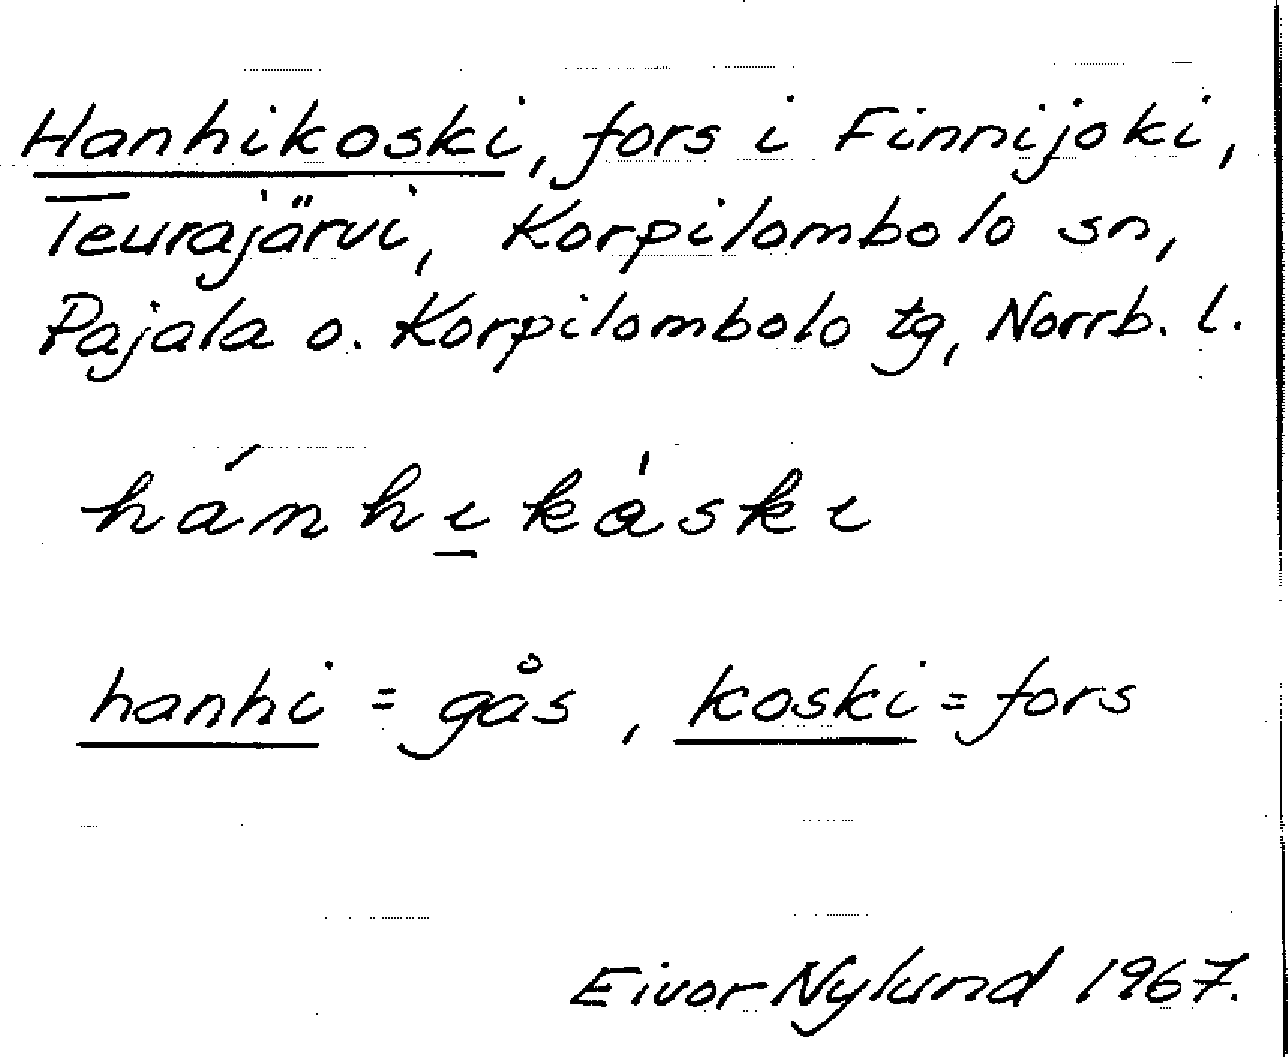 Hanhikoski, fors i Finnijoki,
Teurajärvi, Korpilombolo sn,
Pajala o. Korpilombolo tg, Norrb. l.
hánhı̲kåˈskı
hanhi = gås, koski = fors
Eivor Nylund 1967.